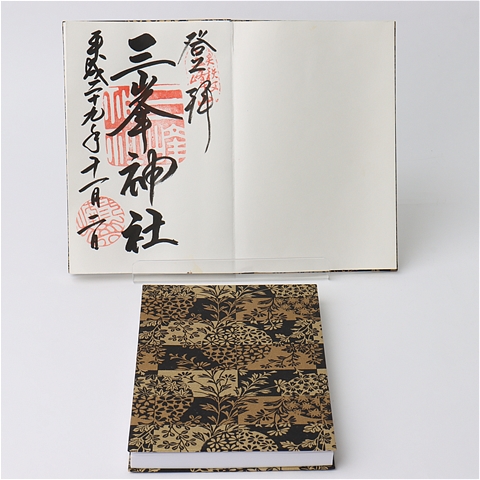 登拝
三峯神社
平成二十九年十一月二日